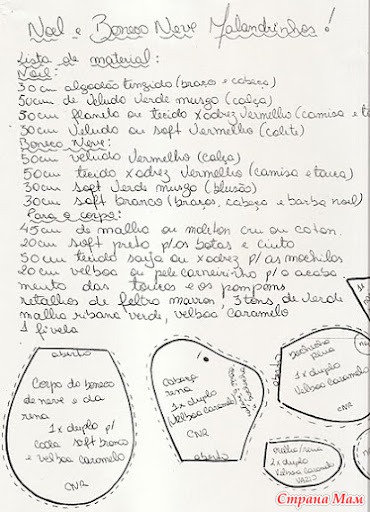 Noel e Boneco Neve Malandrinhos!
Lista de material:
Noel:
30cm algodão tingido (braços e cabeça)
50cm de veludo verde musgo (calça)
50cm flanela ou tecido xadrez vermelho (camisa e to
30cm veludo ou soft vermelho (colete)
Boneco Neve:
50cm veludo vermelho (calça)
50cm tecido xadrez vermelho (camisa e touca)
30cm soft verde musgo (blusão)
30cm soft branco (braços, cabeça e barba noel)
Para o corpo:
45cm de malha ou moleton cru ou coton.
20cm soft preto p/as botas e cinto
50cm tecido sarja ou xadrez p/as mochilas
20cm velboa ou pele carneirinho p/o acaba
mento das toucas e os pompons
retalhos de feltro marron, 3 tons de verde
malha ribana verde, velboa caramelo
1 fivela
aberto
Corpo do boneco
de neve e da
rena
1x duplo p/
cada soft branco
e velboa caramelo
CNR
Cabeça
rena
1x duplo
velboa caramelo
CNR
aberto
aberto
rena
1x duplo
velboa caramelo
CNR
orelha/rena
2x duplo
velboa caramelo
Страна Мам